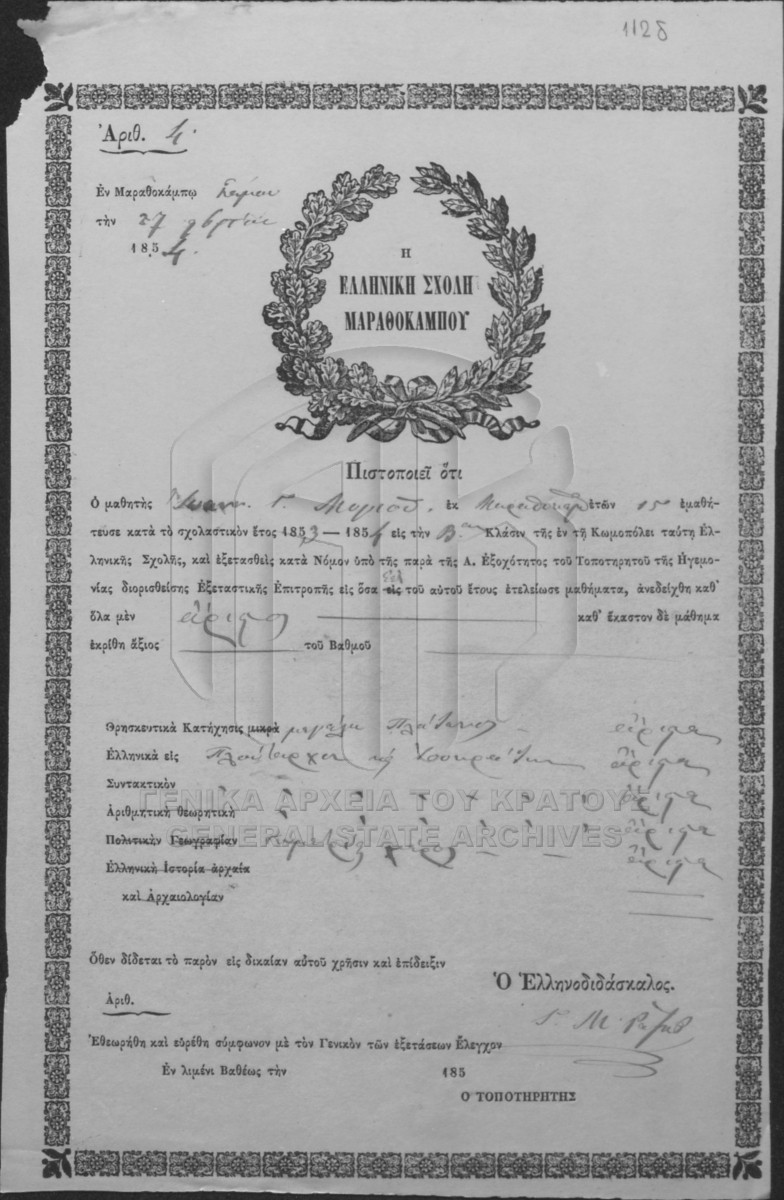 1128
Ἀριθ. 4.
Ἐν Μαραθοκάμπῳ Σάμου
τὴν 27
1854.
Η
ΕΛΛΗΝΙΚΗ ΣΧΟΛΗ
ΜΑΡΑΘΟΚΑΜΠΟΥ
Πιστοποιεῖ ὅτι
Ὁ μαθητὴς Ἰωανν. Γ. ἐκ ἐτῶν 15 ἐμαθή-
τευσε κατὰ τὸ σχολαστικὸν ἔτος 1853—1854 εἰς τὴν Βαν Κλάσιν τῆς ἐν τῇ Κωμοπόλει ταύτῃ Ἑλ-
ληνικῆς Σχολῆς, καὶ ἐξετασθεὶς κατὰ Νόμον ὑπὸ τῆς παρὰ τῆς Α. Ἐξοχότητος τοῦ Τοποτηρητοῦ τῆς Ἡγεμο-
νίας διορισθείσης Ἐξεταστικῆς Ἐπιτροπῆς εἰς ὅσα τοῦ αὐτοῦ ἔτους ἐτελείωσε μαθήματα, ἀνεδείχθη καθ'
ὅλα μὲν ἄριστος καθ' ἕκαστον δὲ μάθημα
ἐκρίθη ἄξιος τοῦ Βαθμοῦ
Θρησκευτικὰ Κατήχησις μικρὰ μεγάλη Πλάτωνος ἄριστα
Ἑλληνικὰ εἰς Πλούταρχον καὶ Ἰσοκράτην ἄριστα
Συντακτικὸν
Ἀριθμητικὴ θεωρητικὴ ἄριστα
ΓΕΝΙΚΑ ΑΡΧΕΙΑ ΤΟΥ ΚΡΑΤΟΥΣ
GENERAL STATE ARCHIVES
Πολιτικὴν Γεωγραφίαν ἄριστα
Ἑλληνικὴ Ἱστορία ἀρχαία ἄριστα
καὶ Ἀρχαιολογίαν
Ὅθεν δίδεται τὸ παρὸν εἰς δικαίαν αὐτοῦ χρῆσιν καὶ ἐπίδειξιν
Ὁ Ἑλληνοδιδάσκαλος.
Ἀριθ.
Γ. Μ.
Ἐθεωρήθη καὶ εὑρέθη σύμφωνον μὲ τὸν Γενικὸν τῶν ἐξετάσεων Ἔλεγχον
Ἐν λιμένι Βαθέως τὴν 185
Ο ΤΟΠΟΤΗΡΗΤΗΣ